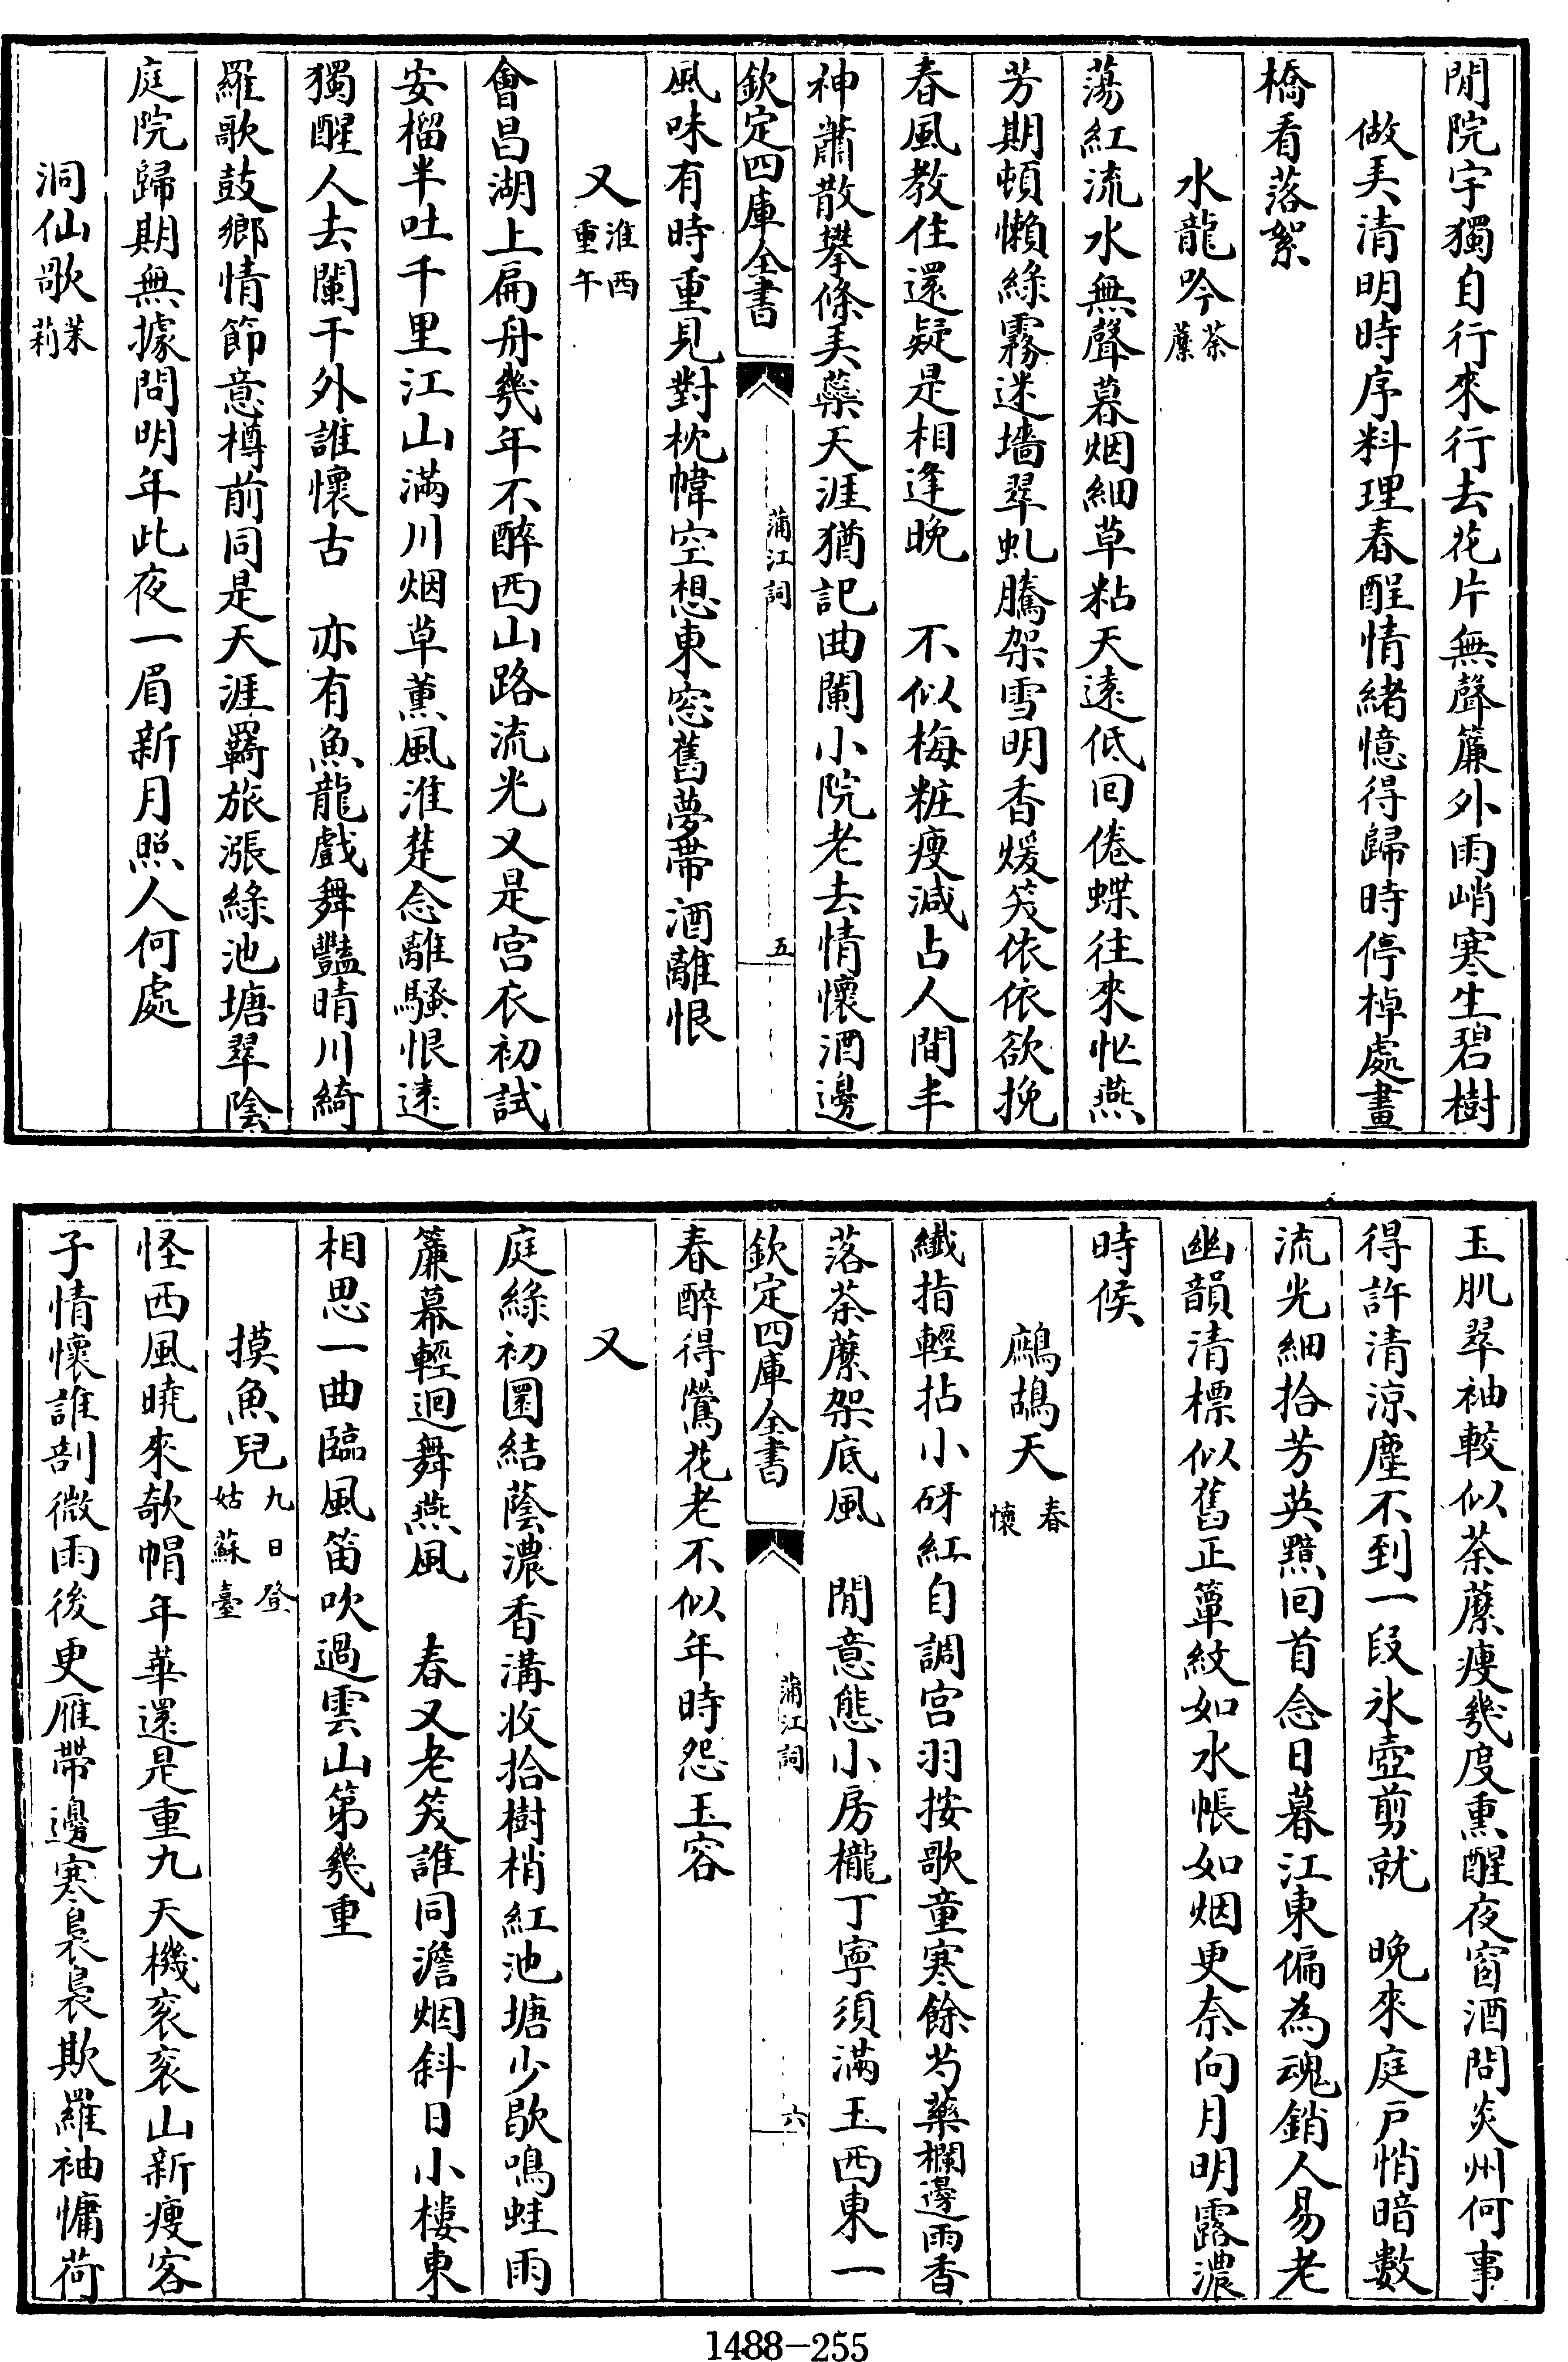 閒院宇獨自行來行去花片無聲簾外雨峭寒生碧樹
做美清明時序料理春酲情緒憶得歸時停棹處畫
橋看落絮
水龍吟荼䕷
蕩紅流水無聲暮烟細草粘天遠低回倦蝶往來忙燕
芳期頓懶綠霧迷墻翠虬騰架雪明香煖笑依依欲挽
春風教住還疑是相逢晚　不似梅粧瘦減占人間丰
神蕭散攀條美蘂天涯猶記曲闌小院老去情懷酒邊
欽定四庫全書
蒲江詞
五
風味有時重見對枕幃空想東窓舊夢帶酒離恨
又淮西重午
會昌湖上扁舟幾年不醉西山路流光又是宫衣初試
安榴半吐千里江山滿川烟草薰風淮楚念離騷恨逺
獨醒人去闌干外誰懷古　亦有魚龍戲舞豔晴川綺
羅歌鼓鄉情節意樽前同是天涯羇旅漲綠池塘翠陰
庭院歸期無據問明年此夜一眉新月照人何處
洞仙歌茉莉
玉肌翠袖較似荼䕷瘦幾度熏醒夜窗酒問炎州何事
得許清涼塵不到一段氷壺剪就　晚來庭戶悄暗數
流光細拾芳英黯回首念日暮江東偏為魂銷人易老
幽韻清標似舊正簟紋如水帳如烟更奈向月明露濃
時候
鷓鴣天春懷
纖指輕拈小砑紅自調宫羽按歌童寒餘芍藥欄邊雨香
落荼䕷架底風　閒意態小房櫳丁寧須滿玉西東一
欽定四庫全書
蒲江詞
六
春醉得鶯花老不似年時怨玉容
又
庭綠初圜結蔭濃香溝收拾樹梢紅池塘少歇鳴蛙雨
簾幕輕迴舞燕風　春又老笑誰同澹烟斜日小樓東
相思一曲臨風笛吹過雲山第幾重
摸魚兒九日登姑蘇臺
怪西風曉來欹帽年華還是重九天機衮衮山新瘦客
子情懷誰剖微雨後更雁帶邊寒裊裊欺羅袖慵荷
1488-255